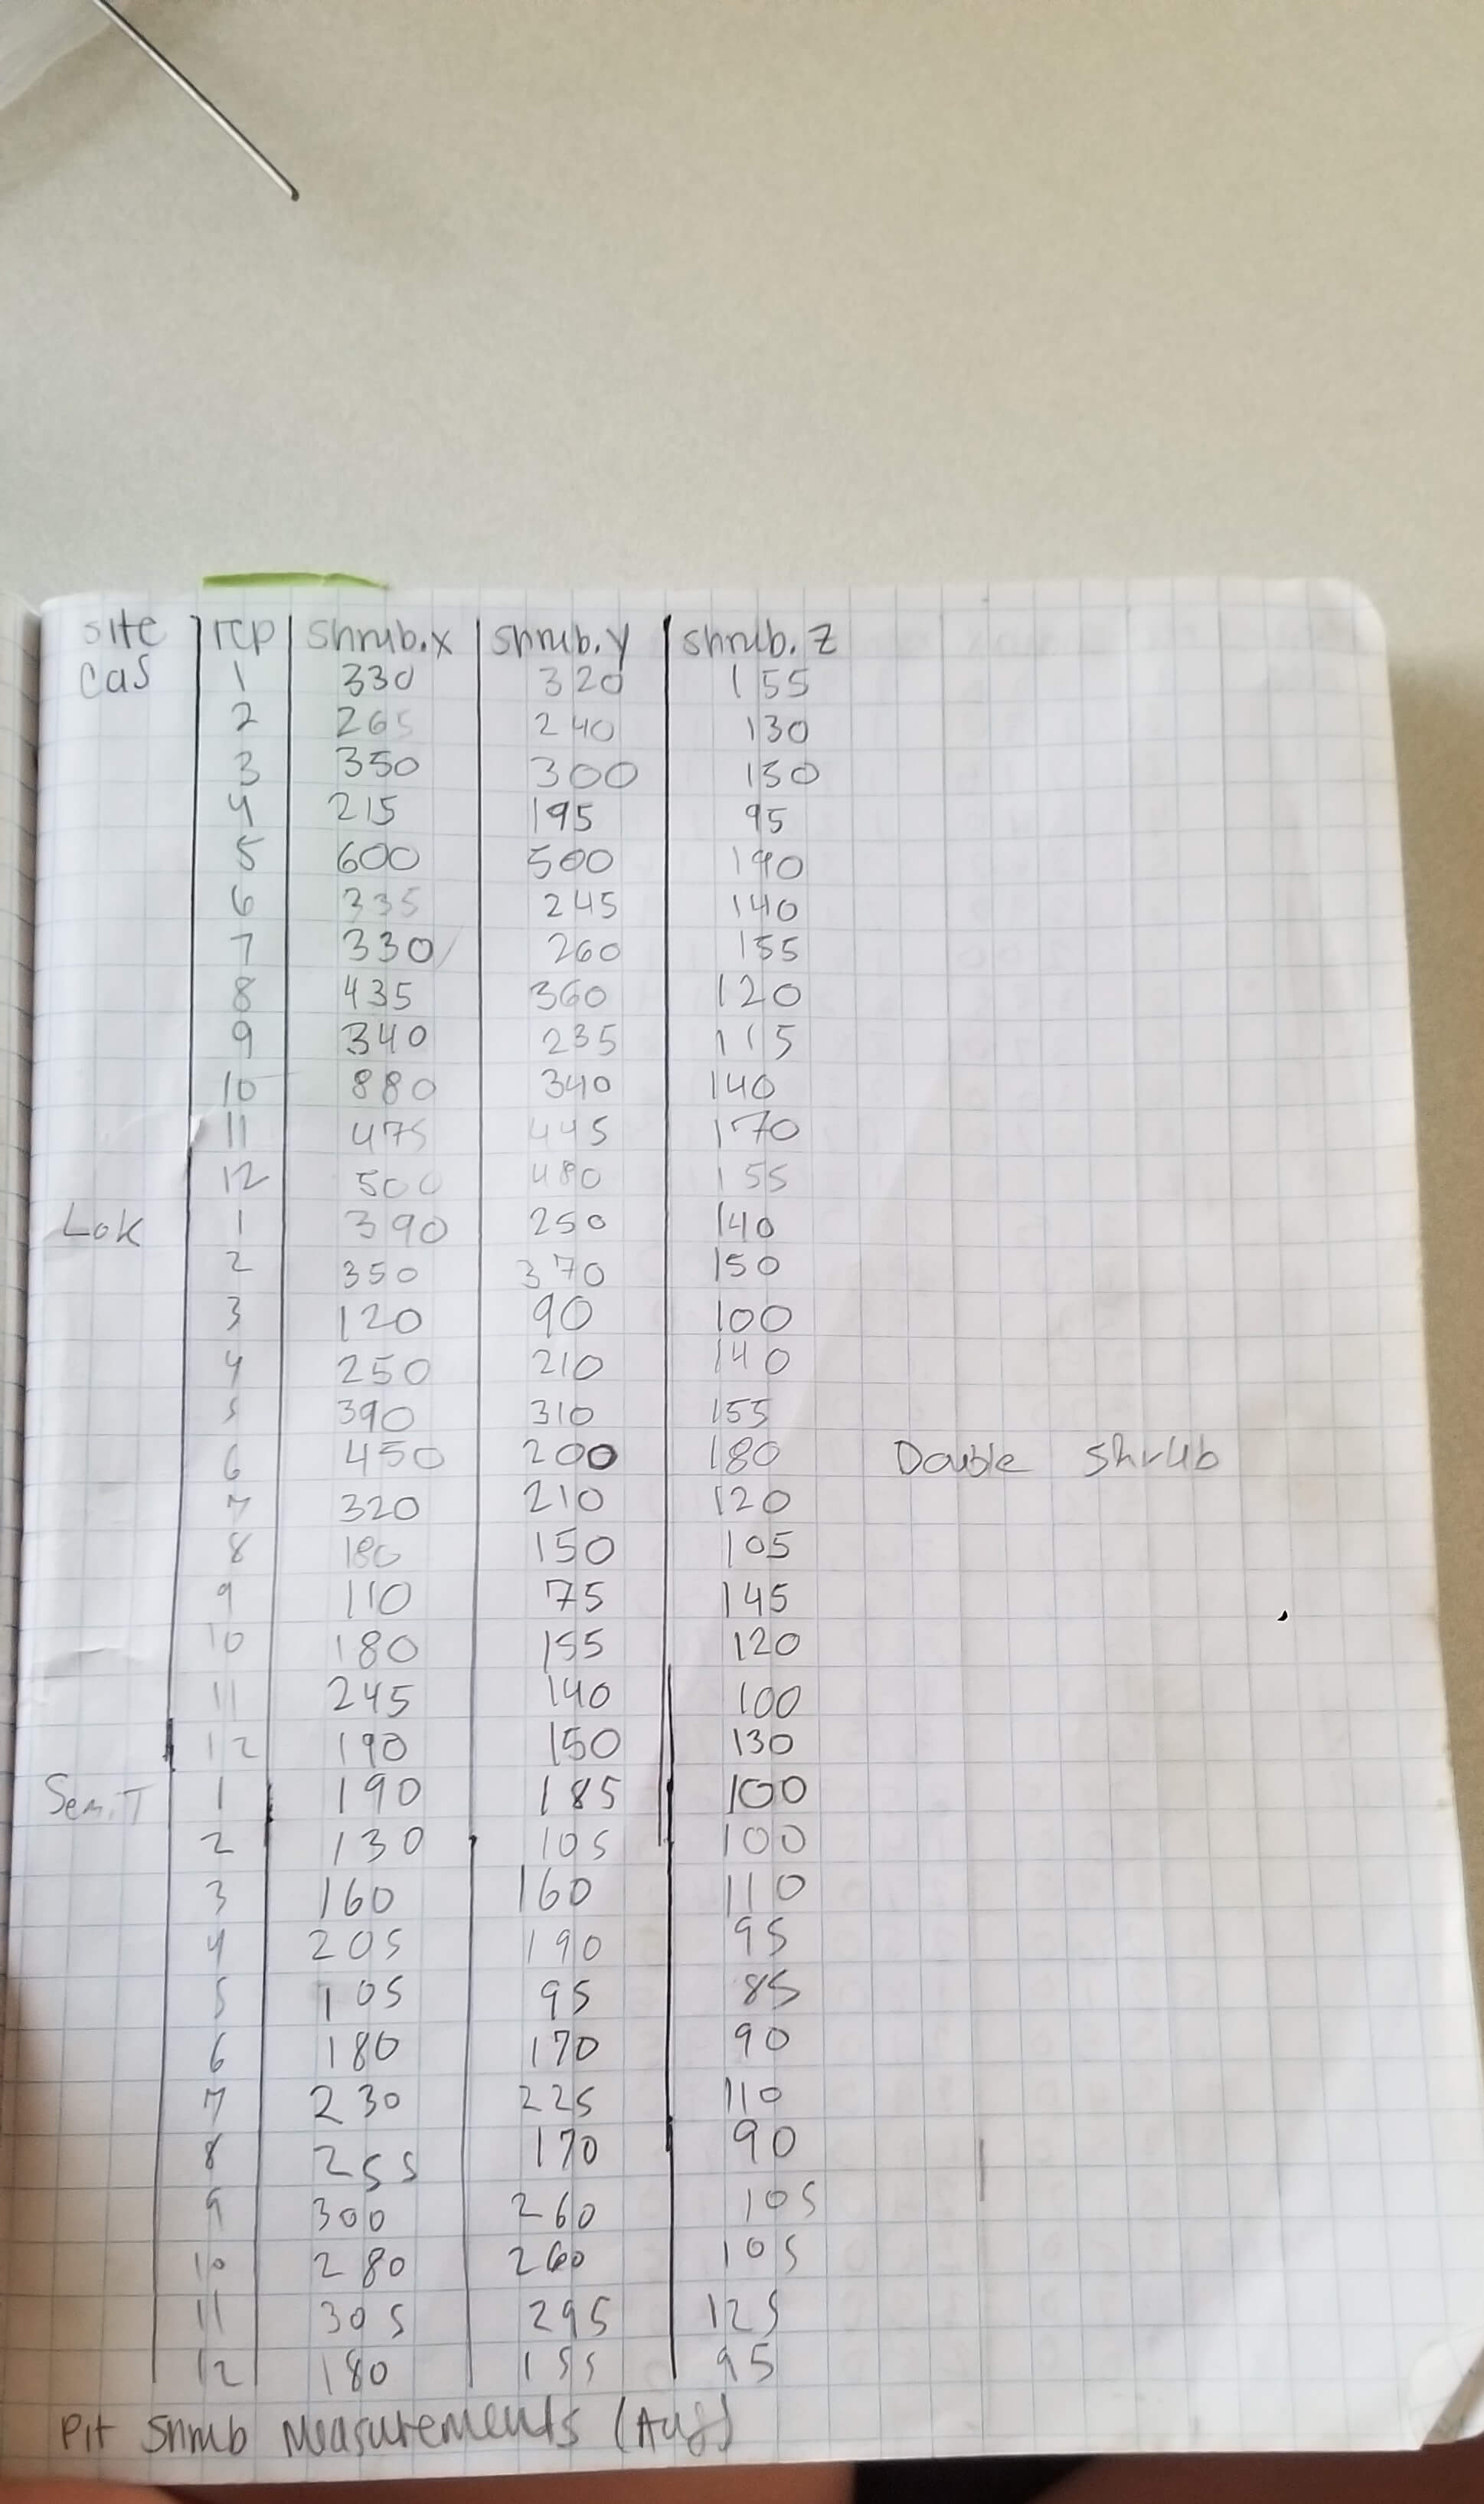 site rep shrub.x shrub.y shrub.z
Cas 1 330 320 155
2 265 240 130
3 350 300 150
4 215 195 95
5 600 500 190
6 335 245 140
7 330 260 155
8 435 360 120
9 340 235 115
10 880 340 140
11 475 445 170
12 500 480 155
Lok 1 390 250 140
2 350 370 150
3 120 90 100
4 250 210 140
5 390 310 155
6 450 200 180 Double shrub
7 320 210 120
8 180 150 105
9 110 75 145
10 180 155 120
11 245 140 100
12 190 150 130
Sem.T 1 190 185 100
2 130 105 100
3 160 160 110
4 205 190 95
5 105 95 85
6 180 170 90
7 230 225 110
8 255 170 90
9 300 260 105
10 280 260 105
11 305 295 125
12 180 155 95
Pit Shrub Measurements (Aug)